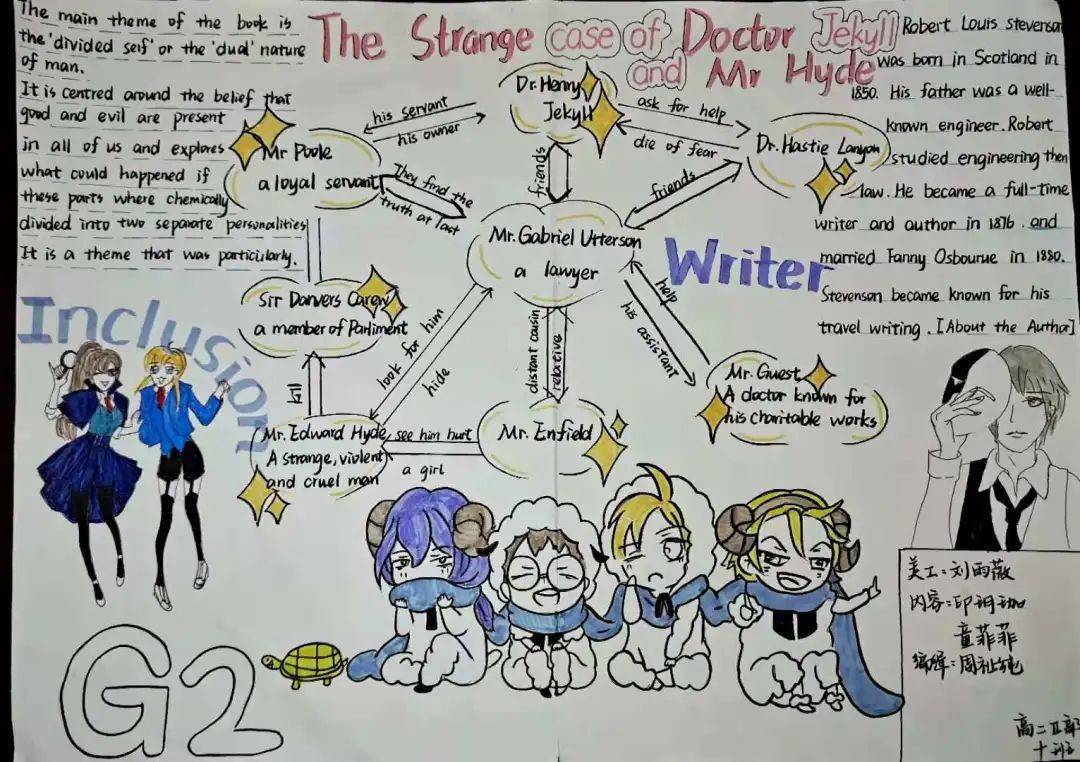 The main theme of the book is
the 'divided self' or the 'dual' nature
of man.
It is centred around the belief that
good and evil are present
in all of us and explores
what could happened if
these parts where chemically
divided into two separate personalities
It is a theme that was particularly.
The Strange case of Doctor Jekyll
and Mr Hyde
Robert Louis Stevenson
was born in Scotland in
1850. His father was a well-
known engineer. Robert
studied engineering then
law. He became a full-time
writer and author in 1876. and
married Fanny Osbourue in 1880.
Stevenson became known for his
travel writing. [About the Author]
Writer
Dr. Henry
Jekyll
his servant
his owner
ask for help
die of fear
Mr Poole
a loyal servant
They find the
truth at last
friends
friends
Dr. Hastie Lanyon
Mr. Gabriel Utterson
a lawyer
Sir Danvers Carew
a member of Parliment
kill
look for him
hide
distant cousin
relative
help
his assistant
Mr. Guest
A doctor known for
his charitable works
Mr. Edward Hyde
A strange, violent
and cruel man
see him hurt
a girl
Mr. Enfield
Inclusion
G2
美工:刘雨薇
内容:印
童菲菲
编辑:周祉
高二II部
十班